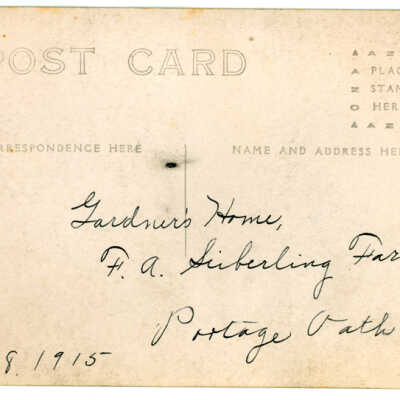 POST CARD
AZ
A PLAC
Z STAM
O HER
AAZ
RRESPONDENCE HERE
NAME AND ADDRESS HE
Gardner's Home,
F. A. Seiberling Far
Portage Path
8. 1915